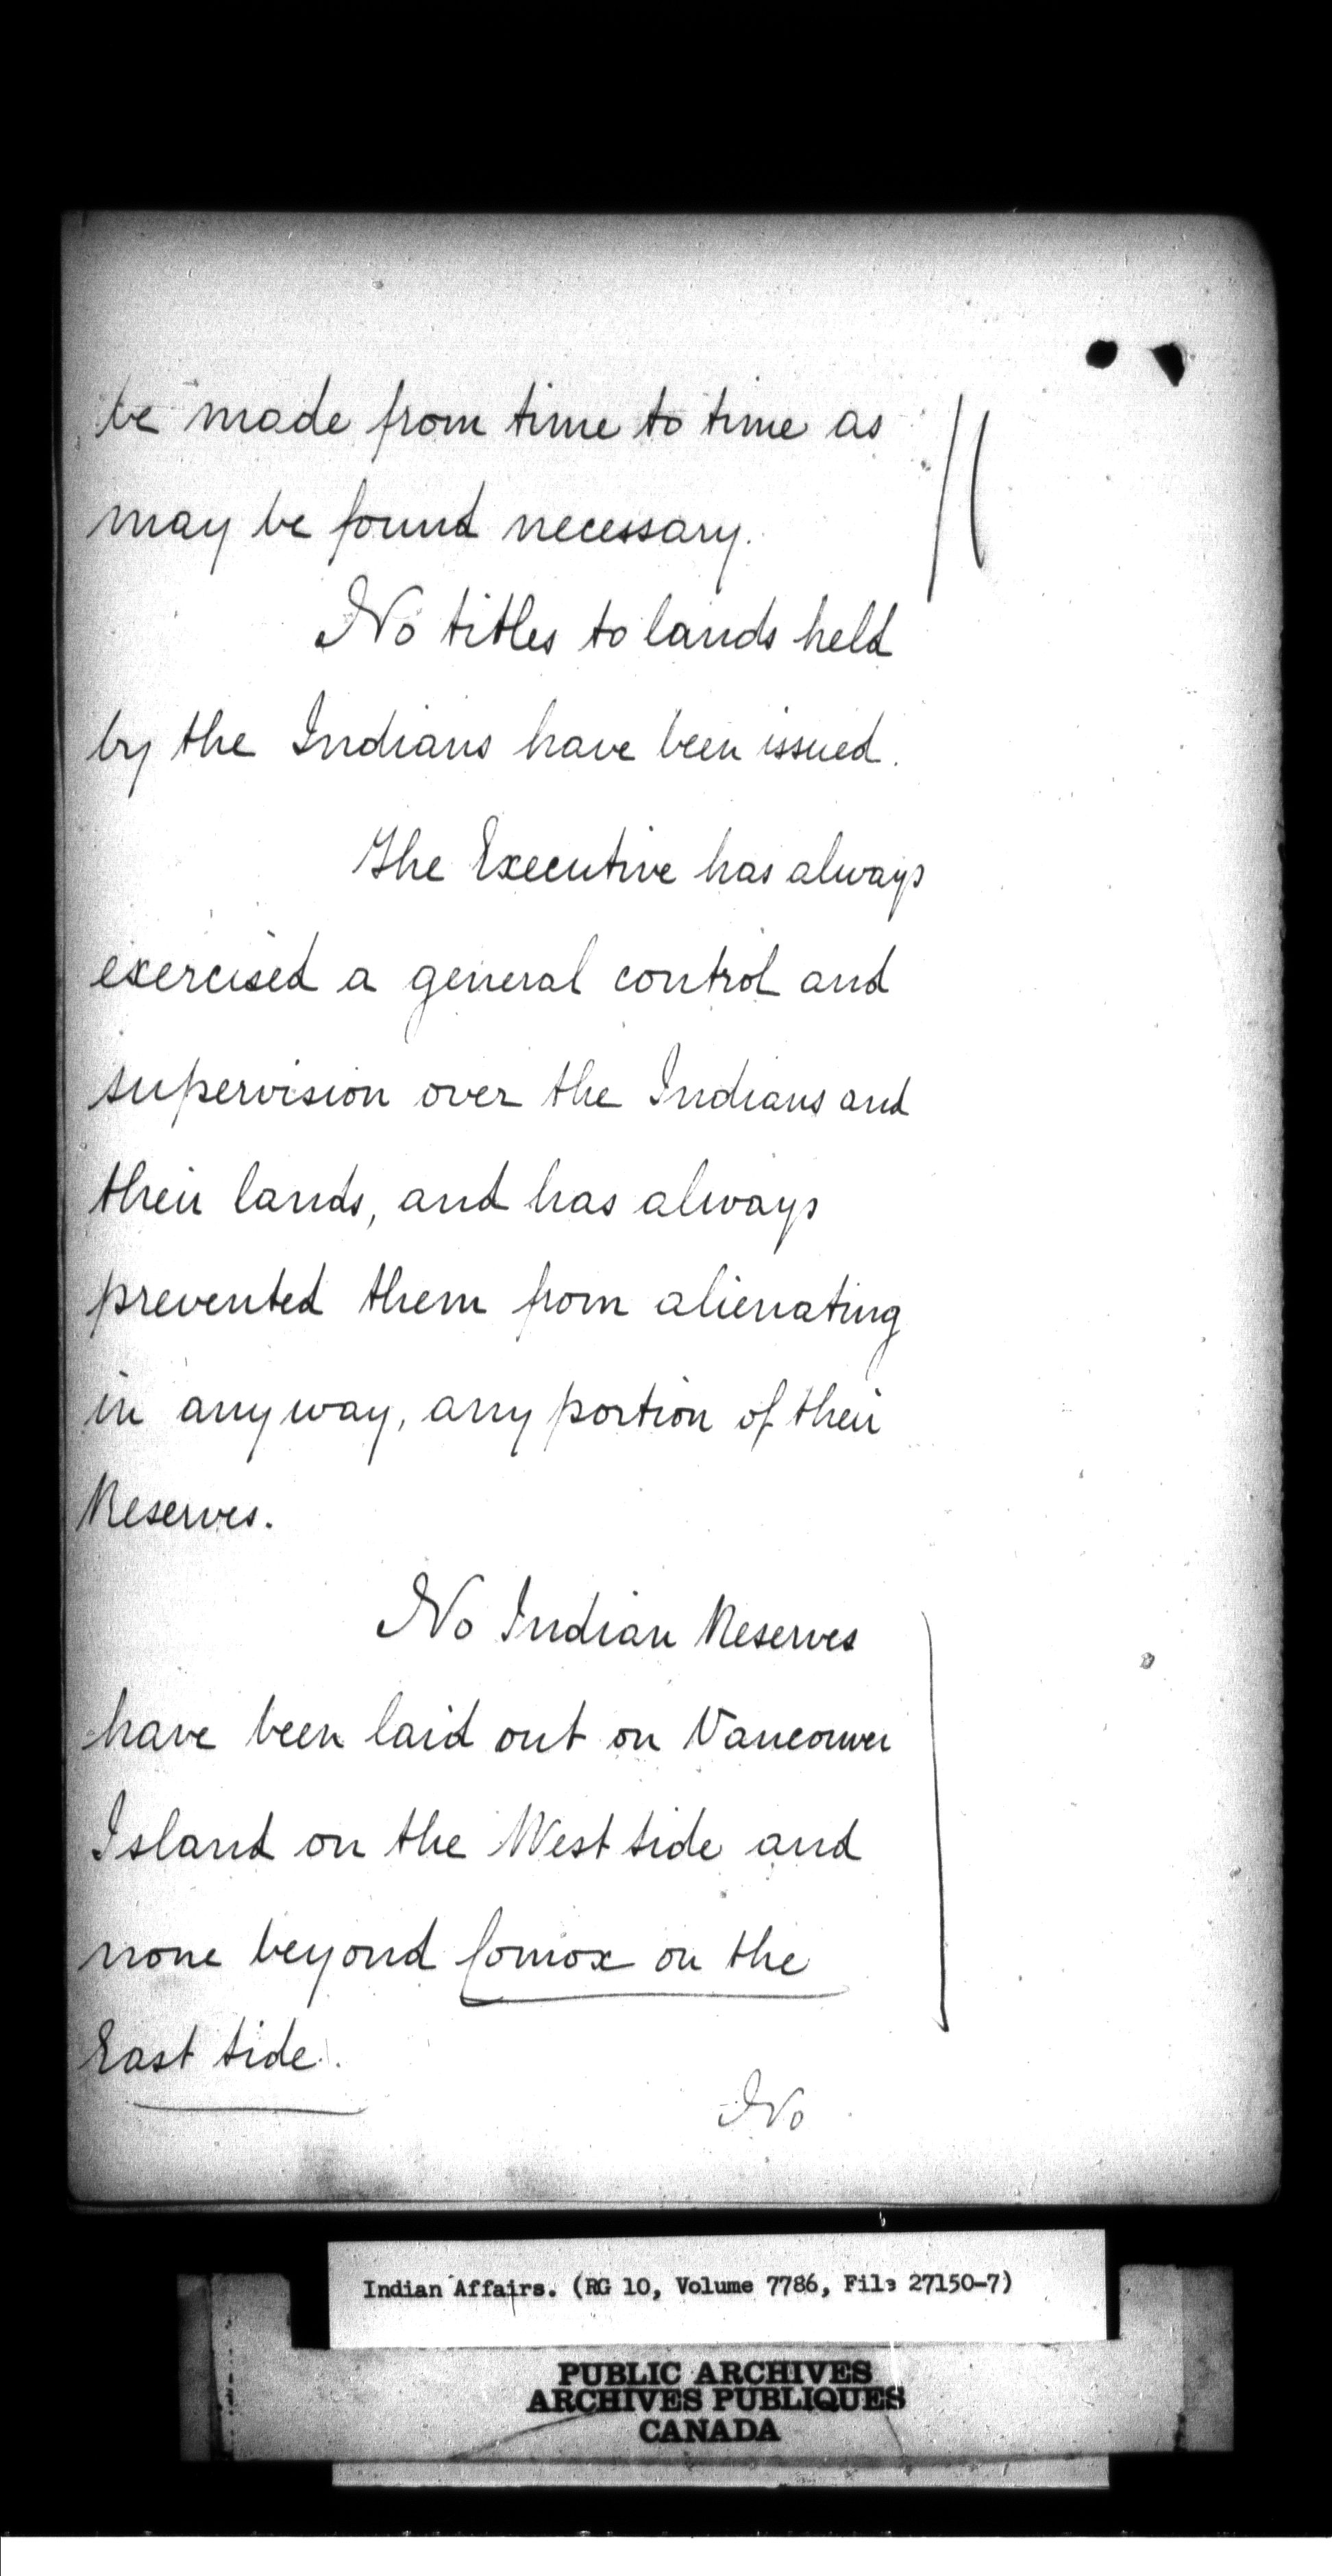 be made from time to time as
may be found necessary.
No titles to lands held
by the Indians have been issued.
The Executive has always
exercised a general control and
supervision over the Indians and
their lands, and has always
prevented them from alienating
in any way, any portion of their
Reserves.
No Indian Reserves
have been laid out on Vancouver
Island on the West side and
none beyond Comox on the
East side.
No
Indian Affairs. (RG 10, Volume 7786, File 27150-7)
PUBLIC ARCHIVES
ARCHIVES PUBLIQUES
CANADA